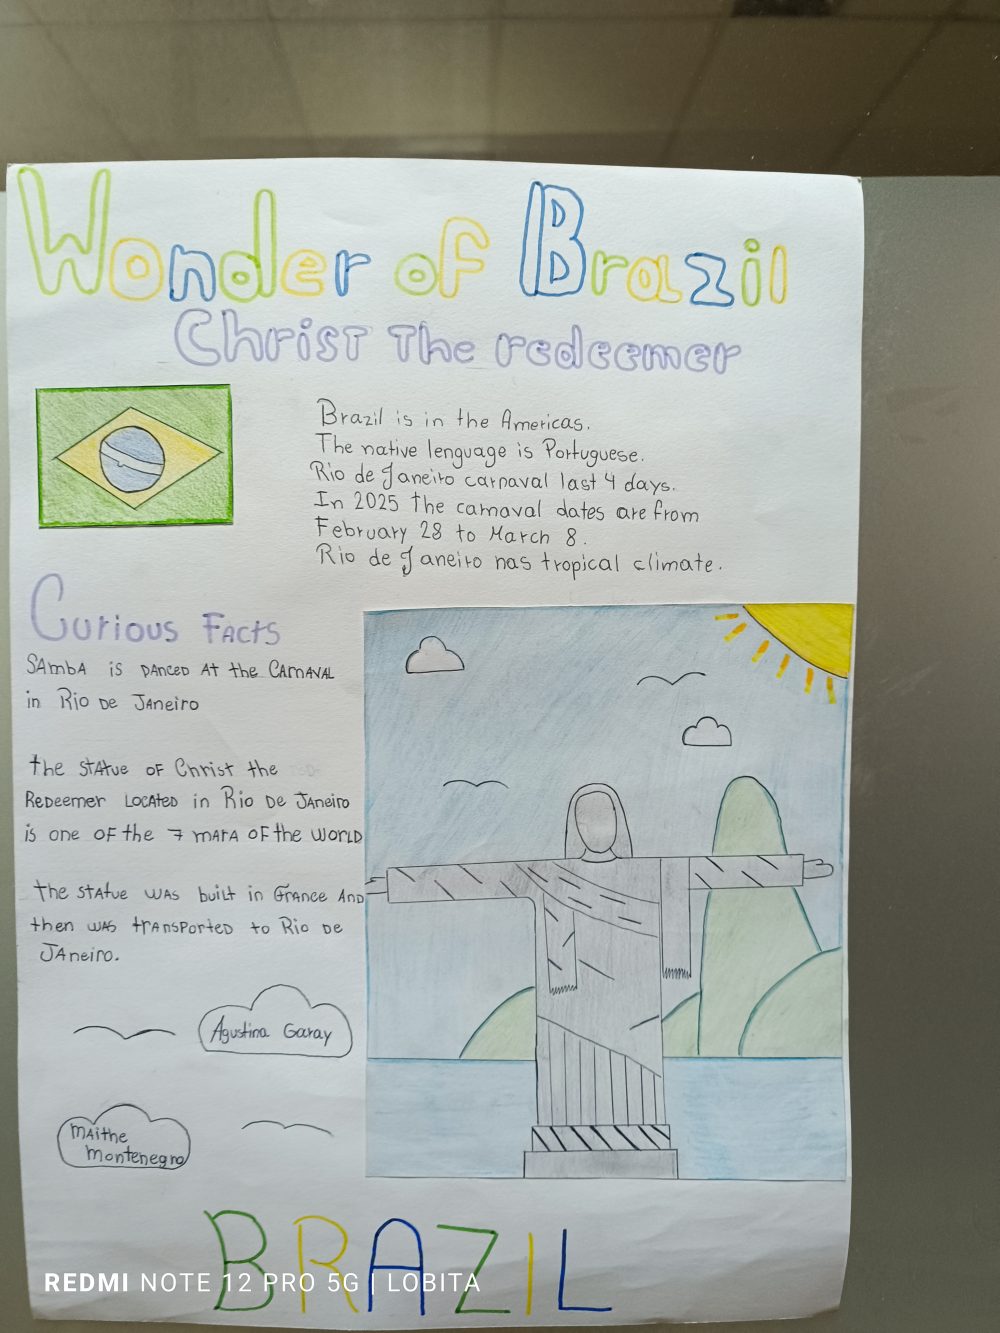 Wonder of Brazil
Christ The redeemer
Brazil is in the Americas.
The native lenguage is Portuguese.
Rio de Janeiro carnaval last 4 days.
In 2025 the carnaval dates are from
February 28 to March 8.
Rio de Janeiro has tropical climate.
Curious Facts
SAmbA is DANCED At the CARNAVAL
in Rio De JAneiro
the StAtue OF Christ the
Redeemer LOCATED in Rio De JAneiro
is one OF the 7 OF the WORLD
the StAtue WAS built in France AnD
then WAS trAnsporteD to Rio De
JAneiro.
Agustina Garay
MAithe
Montenegro
BRAZIL
REDMI NOTE 12 PRO 5G | LOBITA